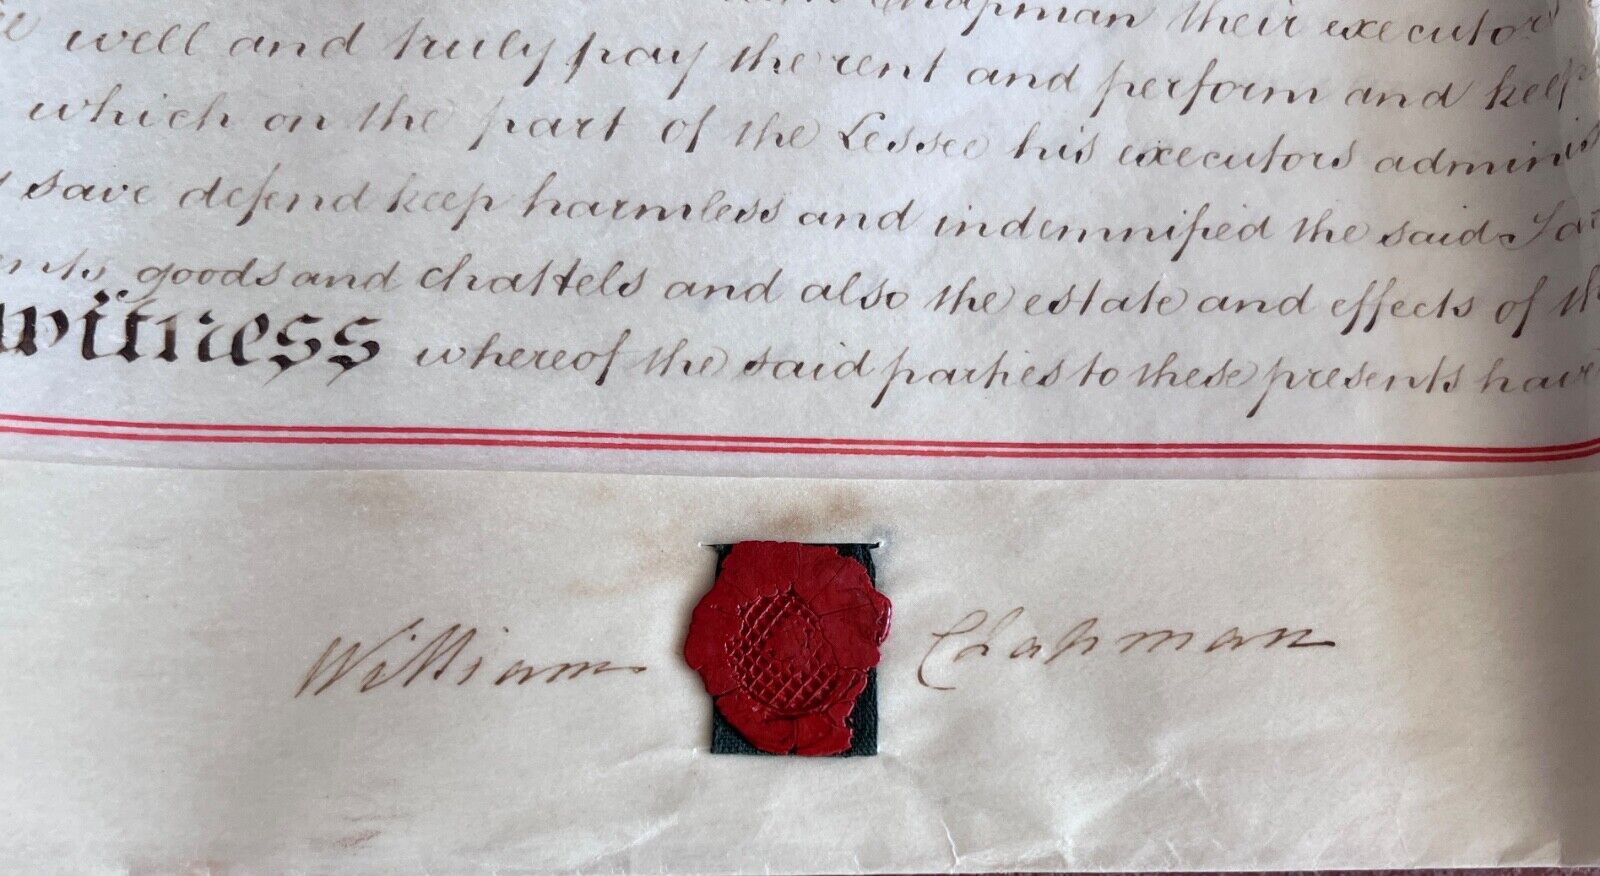 Chapman their executors
well and truly pay the rent and perform and keep
which on the part of the Lessee his executors adminis
save defend keep harmless and indemnified the said
nts goods and chattels and also the estate and effects of the
witness whereof the said parties to these presents have
William Chapman